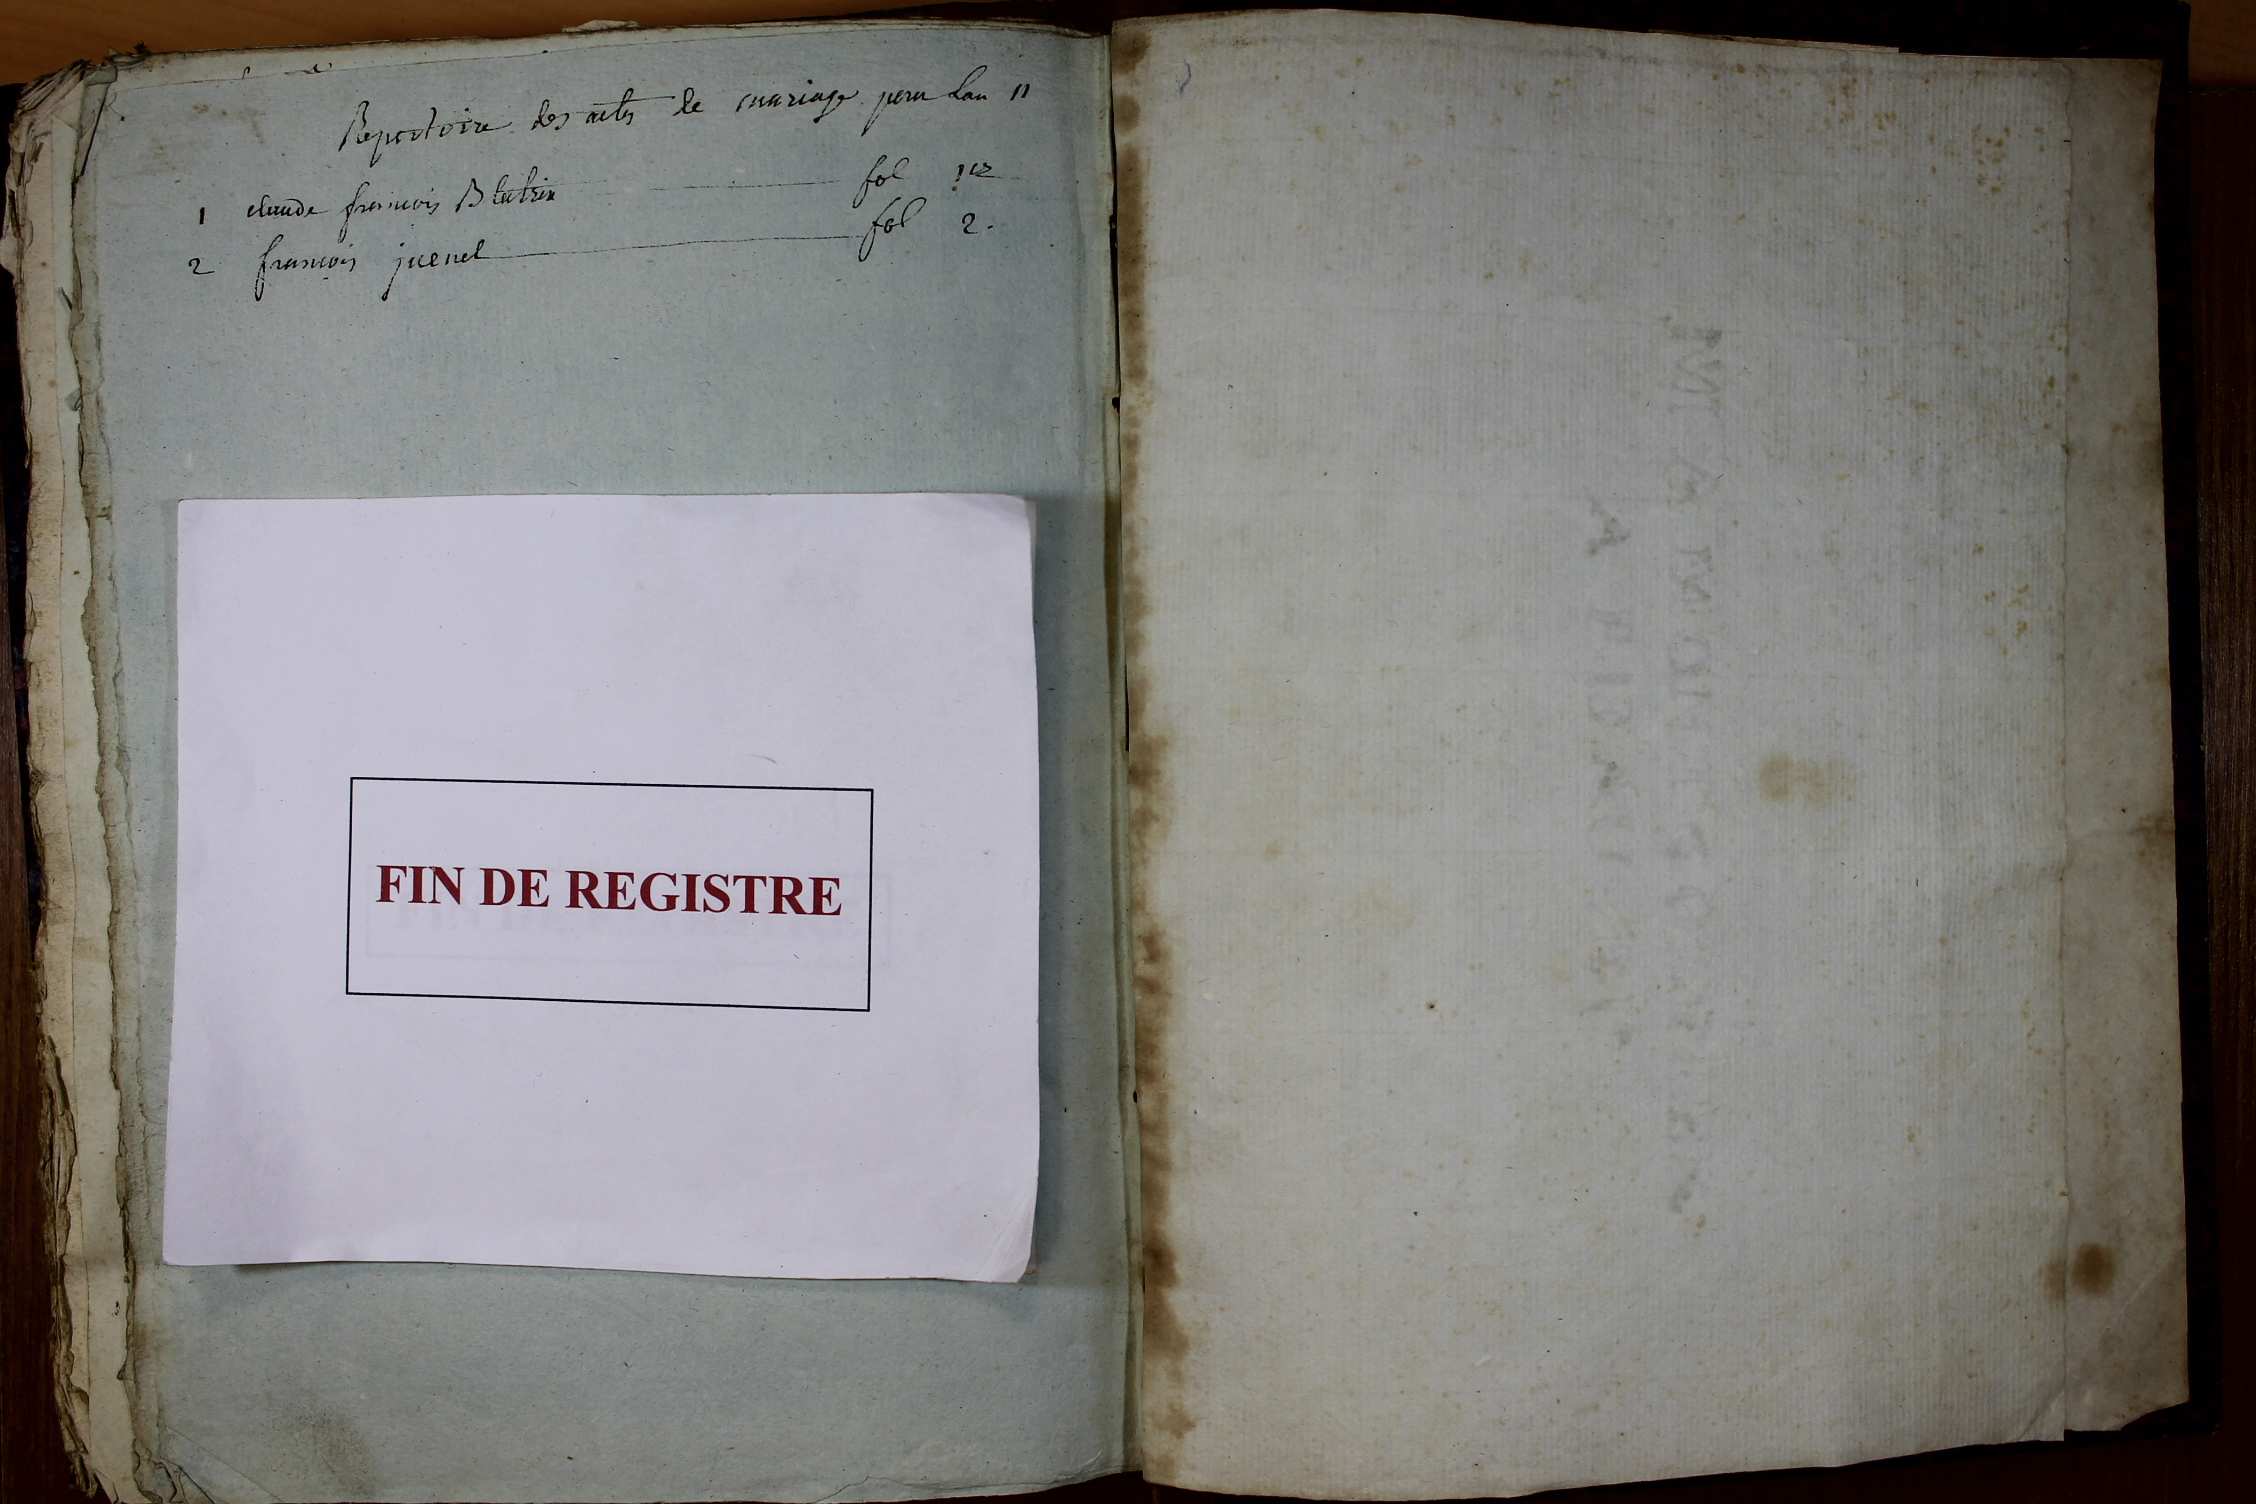 Repertoire des actes de mariage pour Lan 11
1 claude francois Blatrix fol 1
2 francois juenet fol 2.
FIN DE REGISTRE